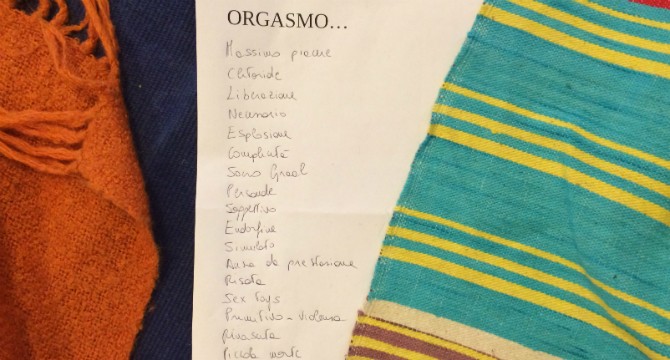 ORGASMO...
Massimo piacere
Clitoride
Liberazione
Necessario
Esplosione
Complicità
Santo Graal
Personale
Soggettivo
Endorfine
Simulato
Ansia da prestazione
Risata
Sex toys
Primitivo - violenza
Piccola morte